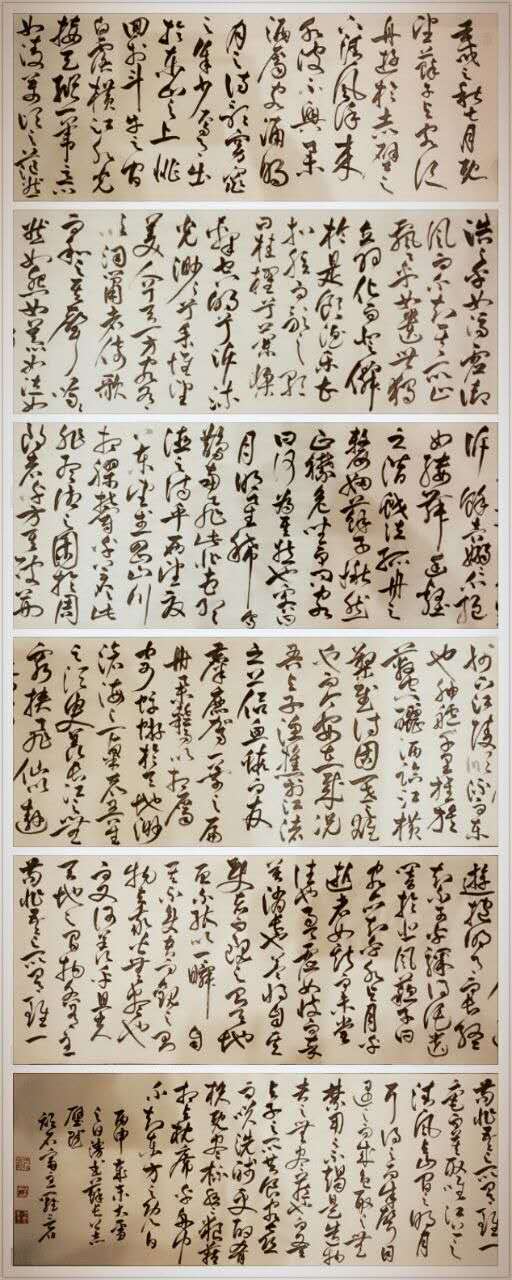 壬戌之秋七月既
望蘇子与客泛
舟遊於赤壁之
下清風徐来
水波不興舉
酒屬客誦明
月之詩歌窈窕
之章少焉月出
於東山之上徘
徊於斗牛之間
白露橫江水光
接天縱一葦之所
如凌萬頃之茫然
浩浩乎如馮虛御
風而不知其所止
飄飄乎如遺世獨
立羽化而登僊
於是飲酒樂甚
扣舷而歌之歌
曰桂櫂兮蘭槳
擊空明兮泝流
光渺渺兮予懷望
美人兮天一方客有
吹洞簫者倚歌
而和之其聲嗚嗚
然如怨如慕如泣如
訴餘音嫋嫋不絕
如縷舞幽壑
之潛蛟泣孤舟之
嫠婦蘇子愀然
正襟危坐而問客
曰何為其然也客曰
月明星稀烏
鵲南飛此非曹孟
德之詩乎西望夏
口東望武昌山川
相繆鬱乎蒼蒼此
非孟德之困於周
郎者乎方其破荊
州下江陵順流而東
也舳艫千里旌旗
蔽空釃酒臨江橫
槊賦詩固一世之雄
也而今安在哉況
吾与子漁樵於江渚
之上侶魚蝦而友
麋鹿駕一葉之扁
舟舉匏樽以相屬
寄蜉蝣於天地渺
滄海之一粟哀吾生
之須臾羨長江之無
窮挾飛仙以遨
遊抱明月而長終
知不可乎驟得託遺
響於悲風蘇子曰
客亦知夫水与月乎
逝者如斯而未嘗
往也盈虛者如彼而卒
莫消長也蓋將自其
變者而觀之則天地
曾不能以一瞬自
其不變者而觀之則
物与我皆無盡也
而又何羨乎且夫
天地之間物各有主
苟非吾之所有雖一
苟非吾之所有雖一
毫而莫取唯江上之
清風与山間之明月
耳得之而為聲目
遇之而成色取之無
禁用之不竭是造物
者之無盡藏也而吾
与子之所共食客喜
而笑洗盞更酌肴
核既盡杯盤狼藉
相与枕席乎舟中
不知東方之既白
丙申大雪
之日書蘇長公赤
壁賦